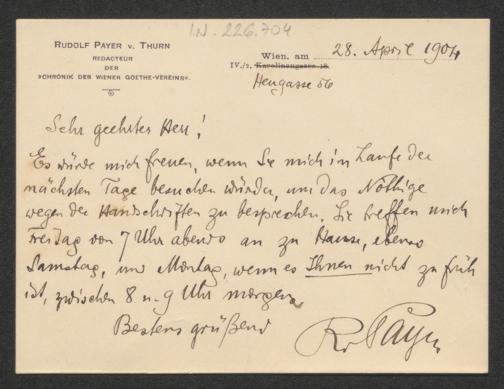 IN. 226.704
RUDOLF PAYER V. THURN
REDACTEUR
DER
»CHRONIK DES WIENER GOETHE-VEREINS«.
Wien, am 28. April 1904
IV./1, Karolinengasse 18.
Heugasse 56
Sehr geehrter Herr!
Es würde mich freuen, wenn Sie mich im Laufe der
nächsten Tage besuchen würden, um das Nöthige
wegen der Handschriften zu besprechen. Sie treffen mich
Freitag von 7 Uhr abends an zu Hause, ebenso
Samstag, und Montag, wenn es Ihnen nicht zu früh
ist, zwischen 8 u. 9 Uhr morgens.
Bestens grüßend
RvPayer